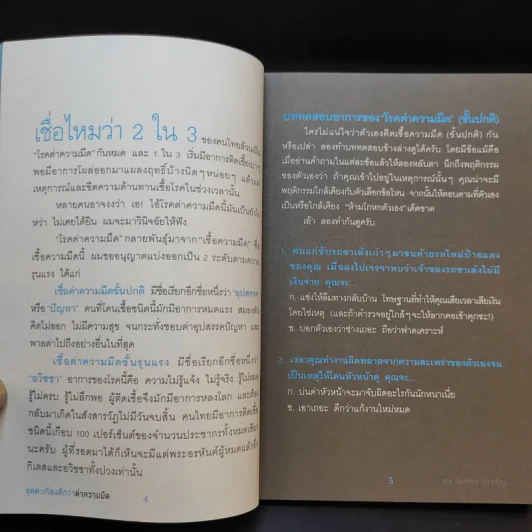 เชื่อไหมว่า 2 ใน 3 ของคนไทยล้วนเป็น
"โรคด่าความมืด" กันหมด และ 1 ใน 3 เริ่มมีอาการติดเชื้อเบาๆ
พอมีอาการโผล่ออกมาแผลงฤทธิ์บ้างนิดๆ หน่อยๆ แล้วแต่
เหตุการณ์และขีดความต้านทานเชื้อโรคในช่วงเวลานั้น
หลายคนอาจงงว่า เอ! ไอ้โรคด่าความมืดนี้มันเป็นยังไง
หว่า ไม่เคยได้ยิน ผมจะมาวินิจฉัยให้ฟัง
"โรคด่าความมืด" กลายพันธุ์มาจาก "เชื้อความมืด" ซึ่ง
เชื้อความมืดนี้ ผมขออนุญาตแบ่งออกเป็น 2 ระดับตามความ
รุนแรง ได้แก่
เชื้อด่าความมืดขั้นปกติ มีชื่อเรียกอีกชื่อหนึ่งว่า "อุปสรรค"
หรือ "ปัญหา" คนที่โดนเชื้อชนิดนี้มักมีอาการหมดแรง สมองตัน
คิดไม่ออก ไม่มีความสุข จนกระทั่งชอบด่าอุปสรรคปัญหา และ
พาลด่าไปถึงอย่างอื่นในที่สุด
เชื้อด่าความมืดขั้นรุนแรง มีชื่อเรียกอีกชื่อหนึ่งว่า
"อวิชชา" อาการของโรคนี้คือ ความไม่รู้แจ้ง ไม่รู้จริง รู้ไม่หมด
รู้ไม่ครบ รู้ไม่ลึกพอ ผู้ติดเชื้อจึงมักมีอาการหลงโลก และต้อง
กลับมาเกิดในสังสารวัฏไม่มีวันจบสิ้น คนไทยมีอาการติดเชื้อ
ชนิดนี้เกือบ 100 เปอร์เซ็นต์ของจำนวนประชากรทั้งหมดเชียว
นะครับ ผู้ที่รอดมาได้ก็เห็นจะมีแต่พระอรหันต์ผู้หมดแล้วซึ่ง
กิเลสและอวิชชาทั้งปวงเท่านั้น
จุดตะเกียงดีกว่าด่าความมืด
4
บททดสอบอาการของ "โรคด่าความมืด" (ขั้นปกติ)
ใครไม่แน่ใจว่าตัวเองติดเชื้อความมืด (ขั้นปกติ) กัน
หรือเปล่า ลองทำบททดสอบข้างล่างดูได้ครับ โดยมีข้อแม้คือ
เมื่ออ่านคำถามในแต่ละข้อแล้วให้ลองหลับตา นึกถึงพฤติกรรม
ของตัวเองว่า ถ้าคุณเข้าไปอยู่ในเหตุการณ์นั้นๆ คุณน่าจะมี
พฤติกรรมใกล้เคียงกับตัวเลือกข้อไหน จากนั้นให้ตอบตามที่ตัวเอง
เป็นหรือใกล้เคียง "ห้ามโกหกตัวเอง" เด็ดขาด
เอ้า ลองทำกันดูครับ
1. คนแก่ขับรถซาเล้งเก่าๆ มาชนท้ายรถใหม่ป้ายแดง
ของคุณ เมื่อลงไปเจรจาพบว่าเจ้าของรถซาเล้งไม่มี
เงินจ่าย คุณจะ...
ก. แช่งให้ลืมทางกลับบ้าน โทษฐานที่ทำให้คุณเสียเวลาเสียเงิน
โดยใช่เหตุ (และถ้าตำรวจอยู่ใกล้ๆ จะให้ลากคอเข้าคุกซะ!)
ข. บอกตัวเองว่าช่างเถอะ ถือว่าฟาดเคราะห์
2. เวลาคุณทำงานผิดพลาดจากความสะเพร่าของตัวเองจน
เป็นเหตุให้โดนหัวหน้าดุ คุณจะ...
ก. บ่นด่าหัวหน้าจะมาจับผิดอะไรกันหนักหนาเนี่ย
ข. เอาเถอะ ดีกว่าแก้งานใหม่หมด
5